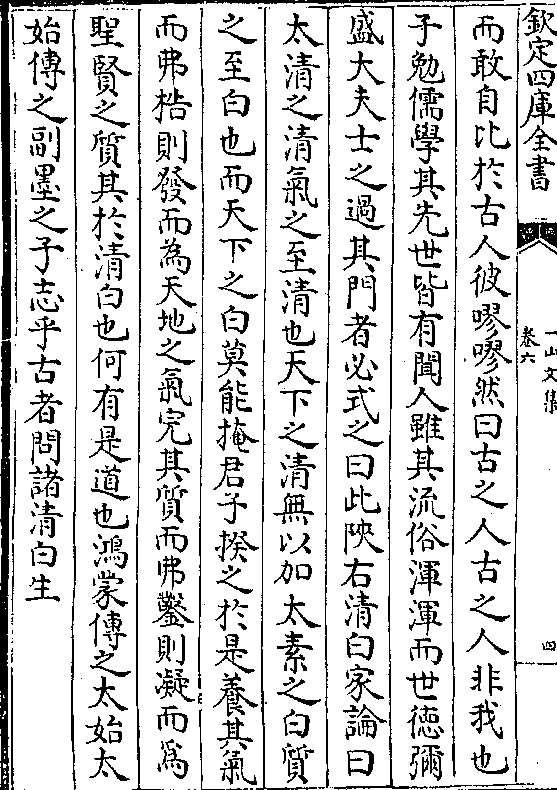 欽定四庫全書
一山文集
卷六
四
而敢自比於古人彼嘐嘐然曰古之人古之人非我也
子勉儒學其先世皆有聞人雖其流俗渾渾而世徳彌
盛大夫士之過其門者必式之曰此陜右清白家論曰
太清之清氣之至清也天下之清無以加太素之白質
之至白也而天下之白莫能掩君子揆之於是養其氣
而弗梏則發而為天地之氣完其質而弗鑿則凝而為
聖賢之質其於清白也何有是道也鴻蒙傳之太始太
始傳之副墨之子志乎古者問諸清白生